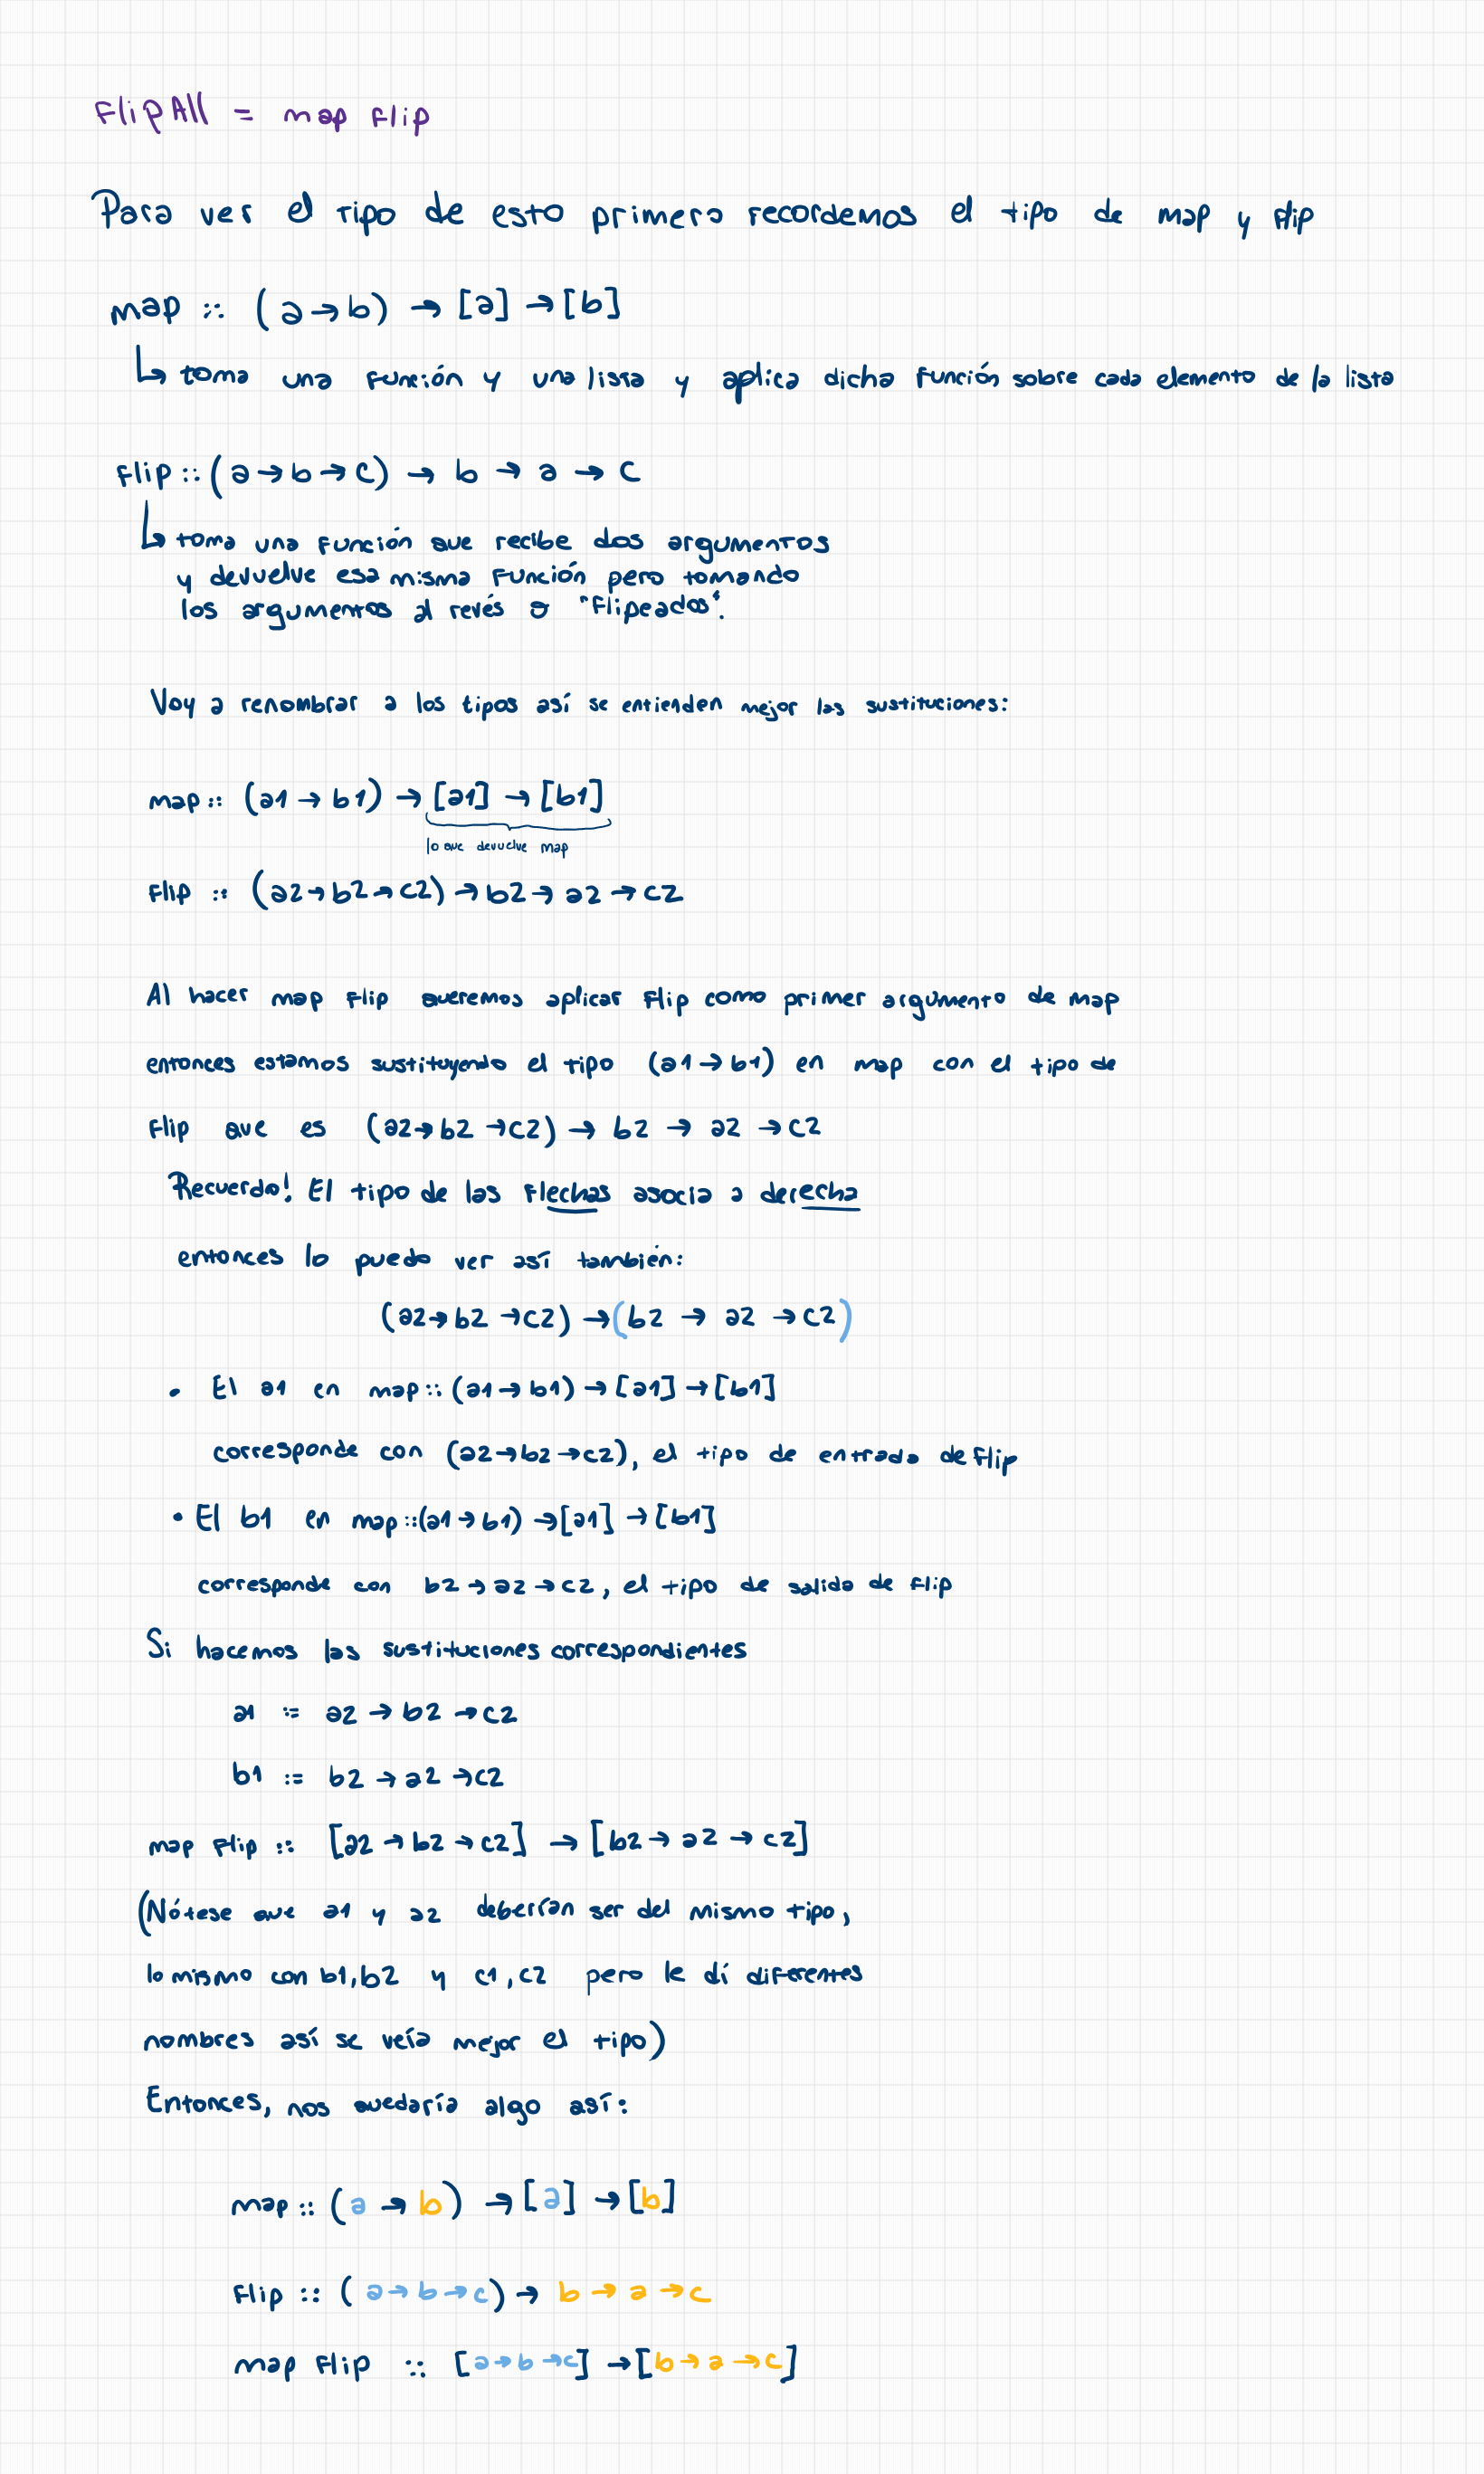 FlipAll = map flip
Para ver el tipo de esto primero recordemos el tipo de map y flip
map :: (a → b) → [a] → [b]
↳ toma una función y una lista y aplica dicha función sobre cada elemento de la lista
flip :: (a → b → c) → b → a → c
↳ toma una función que recibe dos argumentos
y devuelve esa misma función pero tomando
los argumentos al revés o "flipeados".
Voy a renombrar a los tipos así se entienden mejor las sustituciones:
map :: (a1 → b1) → [a1] → [b1]
lo que devuelve map
flip :: (a2 → b2 → c2) → b2 → a2 → c2
Al hacer map flip queremos aplicar flip como primer argumento de map
entonces estamos sustituyendo el tipo (a1 → b1) en map con el tipo de
flip que es (a2 → b2 → c2) → b2 → a2 → c2
Recuerdo! El tipo de las flechas asocia a derecha
entonces lo puedo ver así también:
(a2 → b2 → c2) → (b2 → a2 → c2)
• El a1 en map :: (a1 → b1) → [a1] → [b1]
corresponde con (a2 → b2 → c2), el tipo de entrada de flip
• El b1 en map :: (a1 → b1) → [a1] → [b1]
corresponde con b2 → a2 → c2, el tipo de salida de flip
Si hacemos las sustituciones correspondientes
a1 := a2 → b2 → c2
b1 := b2 → a2 → c2
map flip :: [a2 → b2 → c2] → [b2 → a2 → c2]
(Nótese que a1 y a2 deberían ser del mismo tipo,
lo mismo con b1, b2 y c1, c2 pero le dí diferentes
nombres así se veía mejor el tipo)
Entonces, nos quedaría algo así:
map :: (a → b) → [a] → [b]
flip :: (a → b → c) → b → a → c
map flip :: [a → b → c] → [b → a → c]